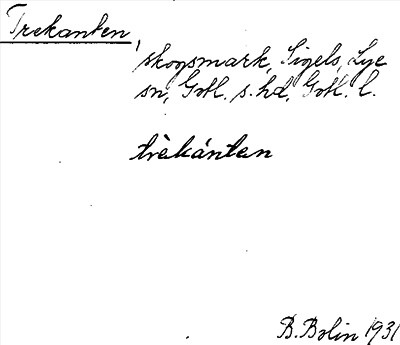 Trekanten,
skogsmark, Sigels, Lye
sn, Gotl. s. hd, Gotl. l.
trèkánten
B. Bolin 1931